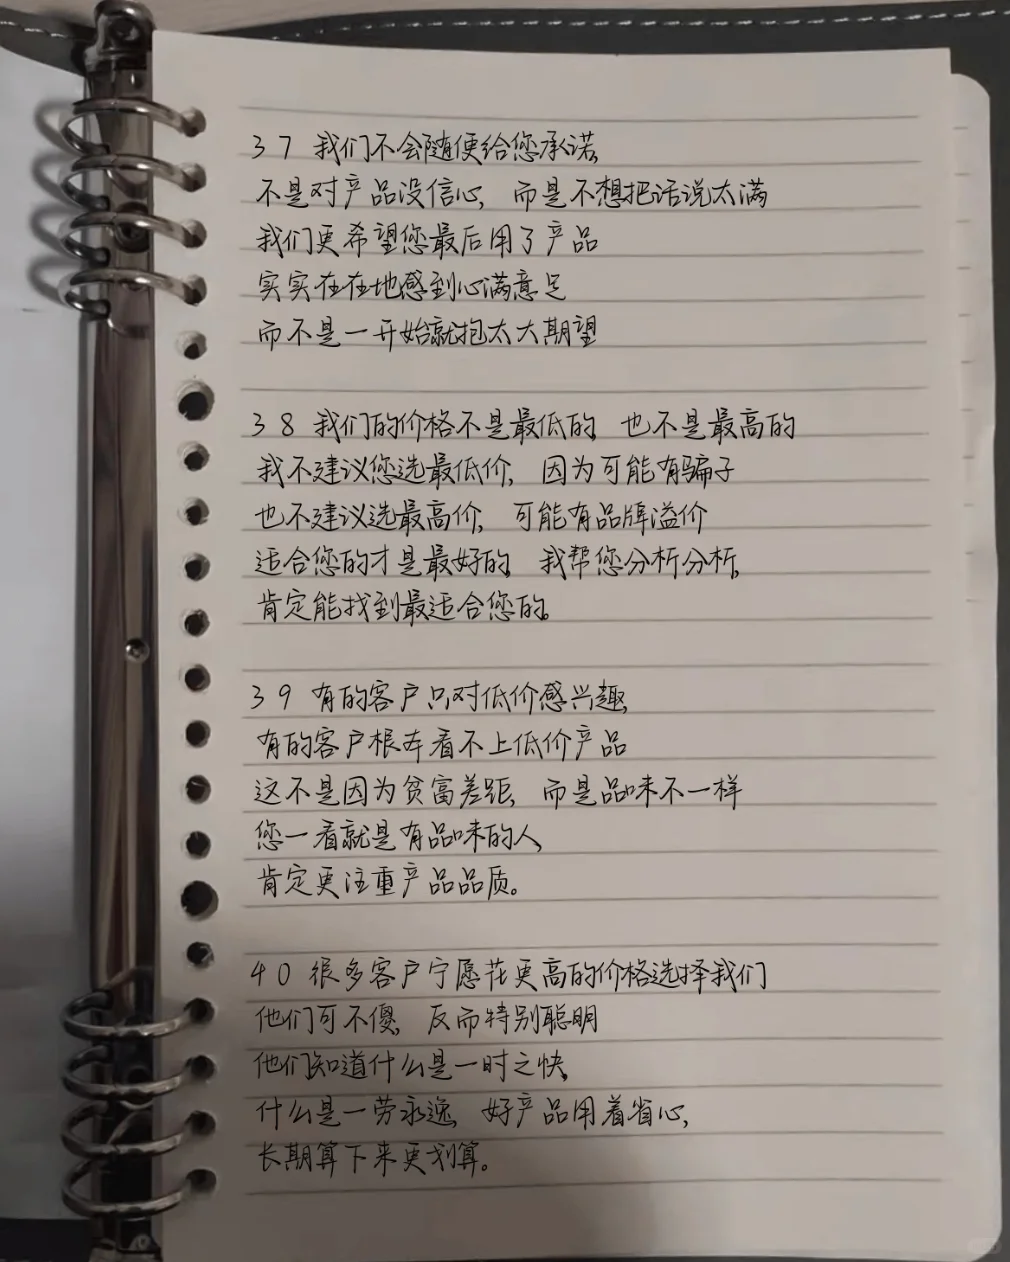 37 我们不会随便给您承诺,
不是对产品没信心, 而是不想把话说太满
我们更希望您最后用了产品
实实在在地感到心满意足
而不是一开始就抱太大期望
38 我们的价格不是最低的, 也不是最高的
我不建议您选最低价, 因为可能有骗子
也不建议选最高价, 可能有品牌溢价
适合您的才是最好的, 我帮您分析分析,
肯定能找到最适合您的。
39 有的客户只对低价感兴趣,
有的客户根本看不上低价产品
这不是因为贫富差距, 而是品味不一样
您一看就是有品味的人,
肯定更注重产品品质。
40 很多客户宁愿花更高的价格选择我们
他们可不傻, 反而特别聪明
他们知道什么是一时之快,
什么是一劳永逸, 好产品用着省心,
长期算下来更划算。